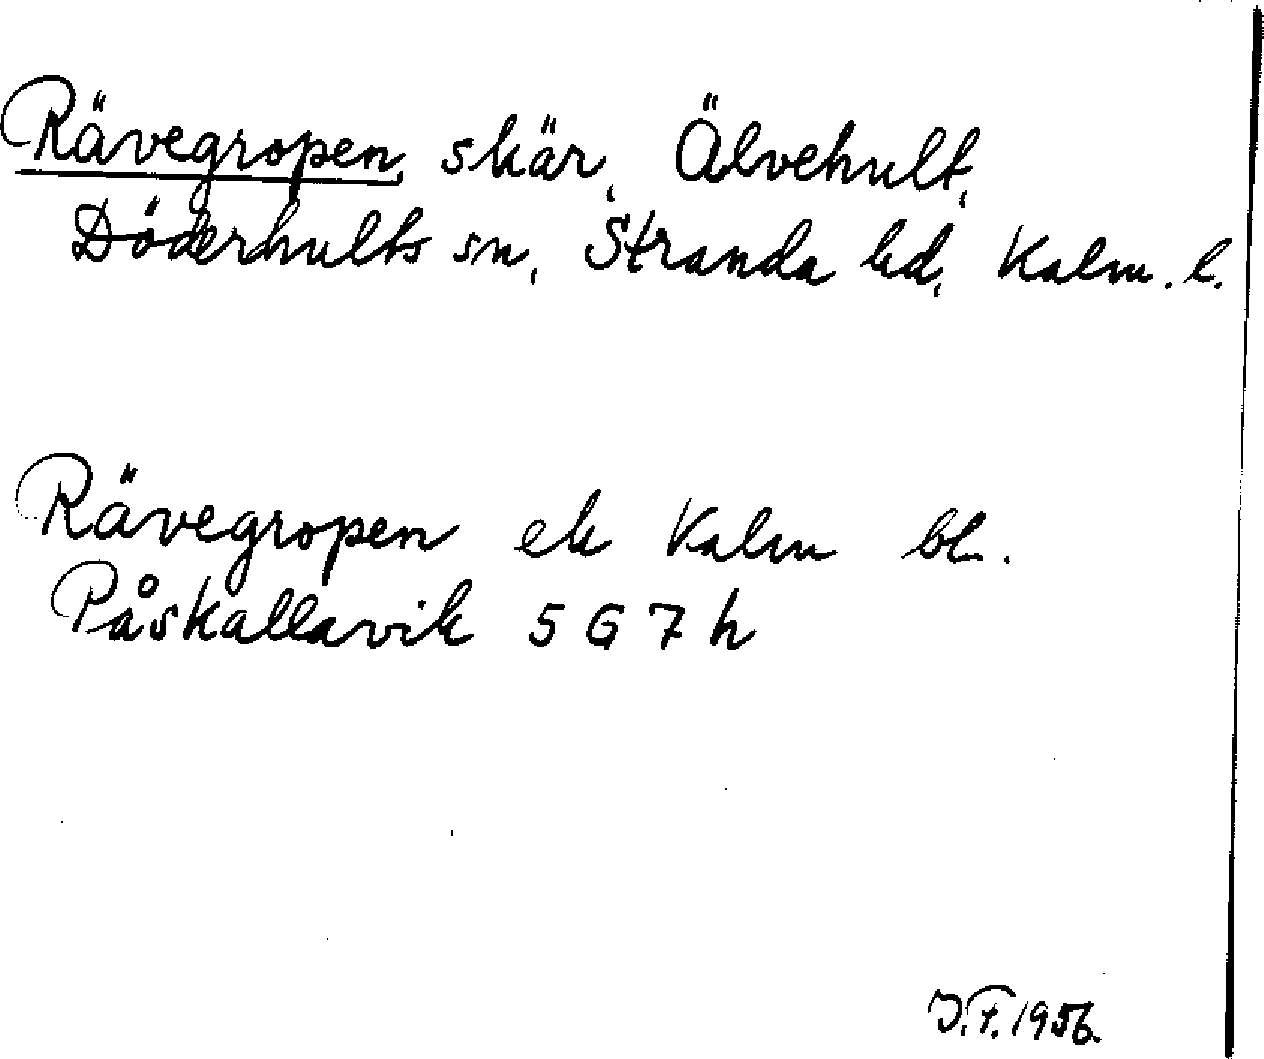 Rävegropen, skär, Älvehult,
Döderhults sn, Stranda hd, Kalm. l.
Rävegropen ek Kalm bl.
Påskallavik 5 G 7 h
J.F. 1956.